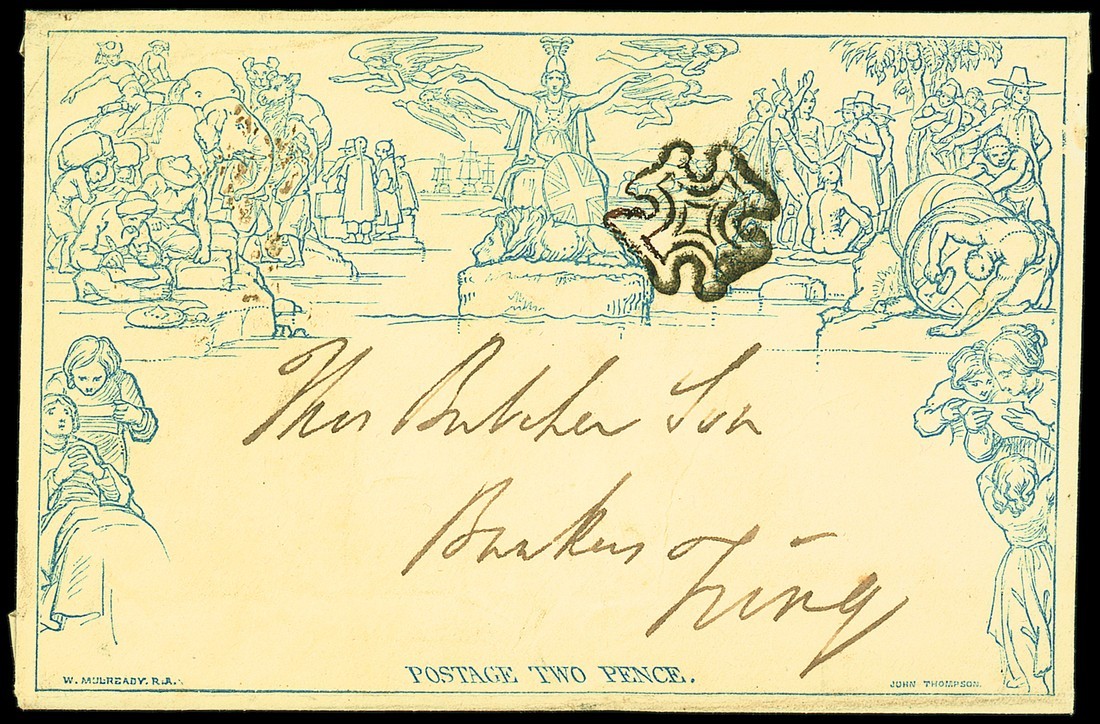 Thos Butcher Son
Bankers
Tring
POSTAGE TWO PENCE.
W. MULREADY. R.A.
JOHN THOMPSON.